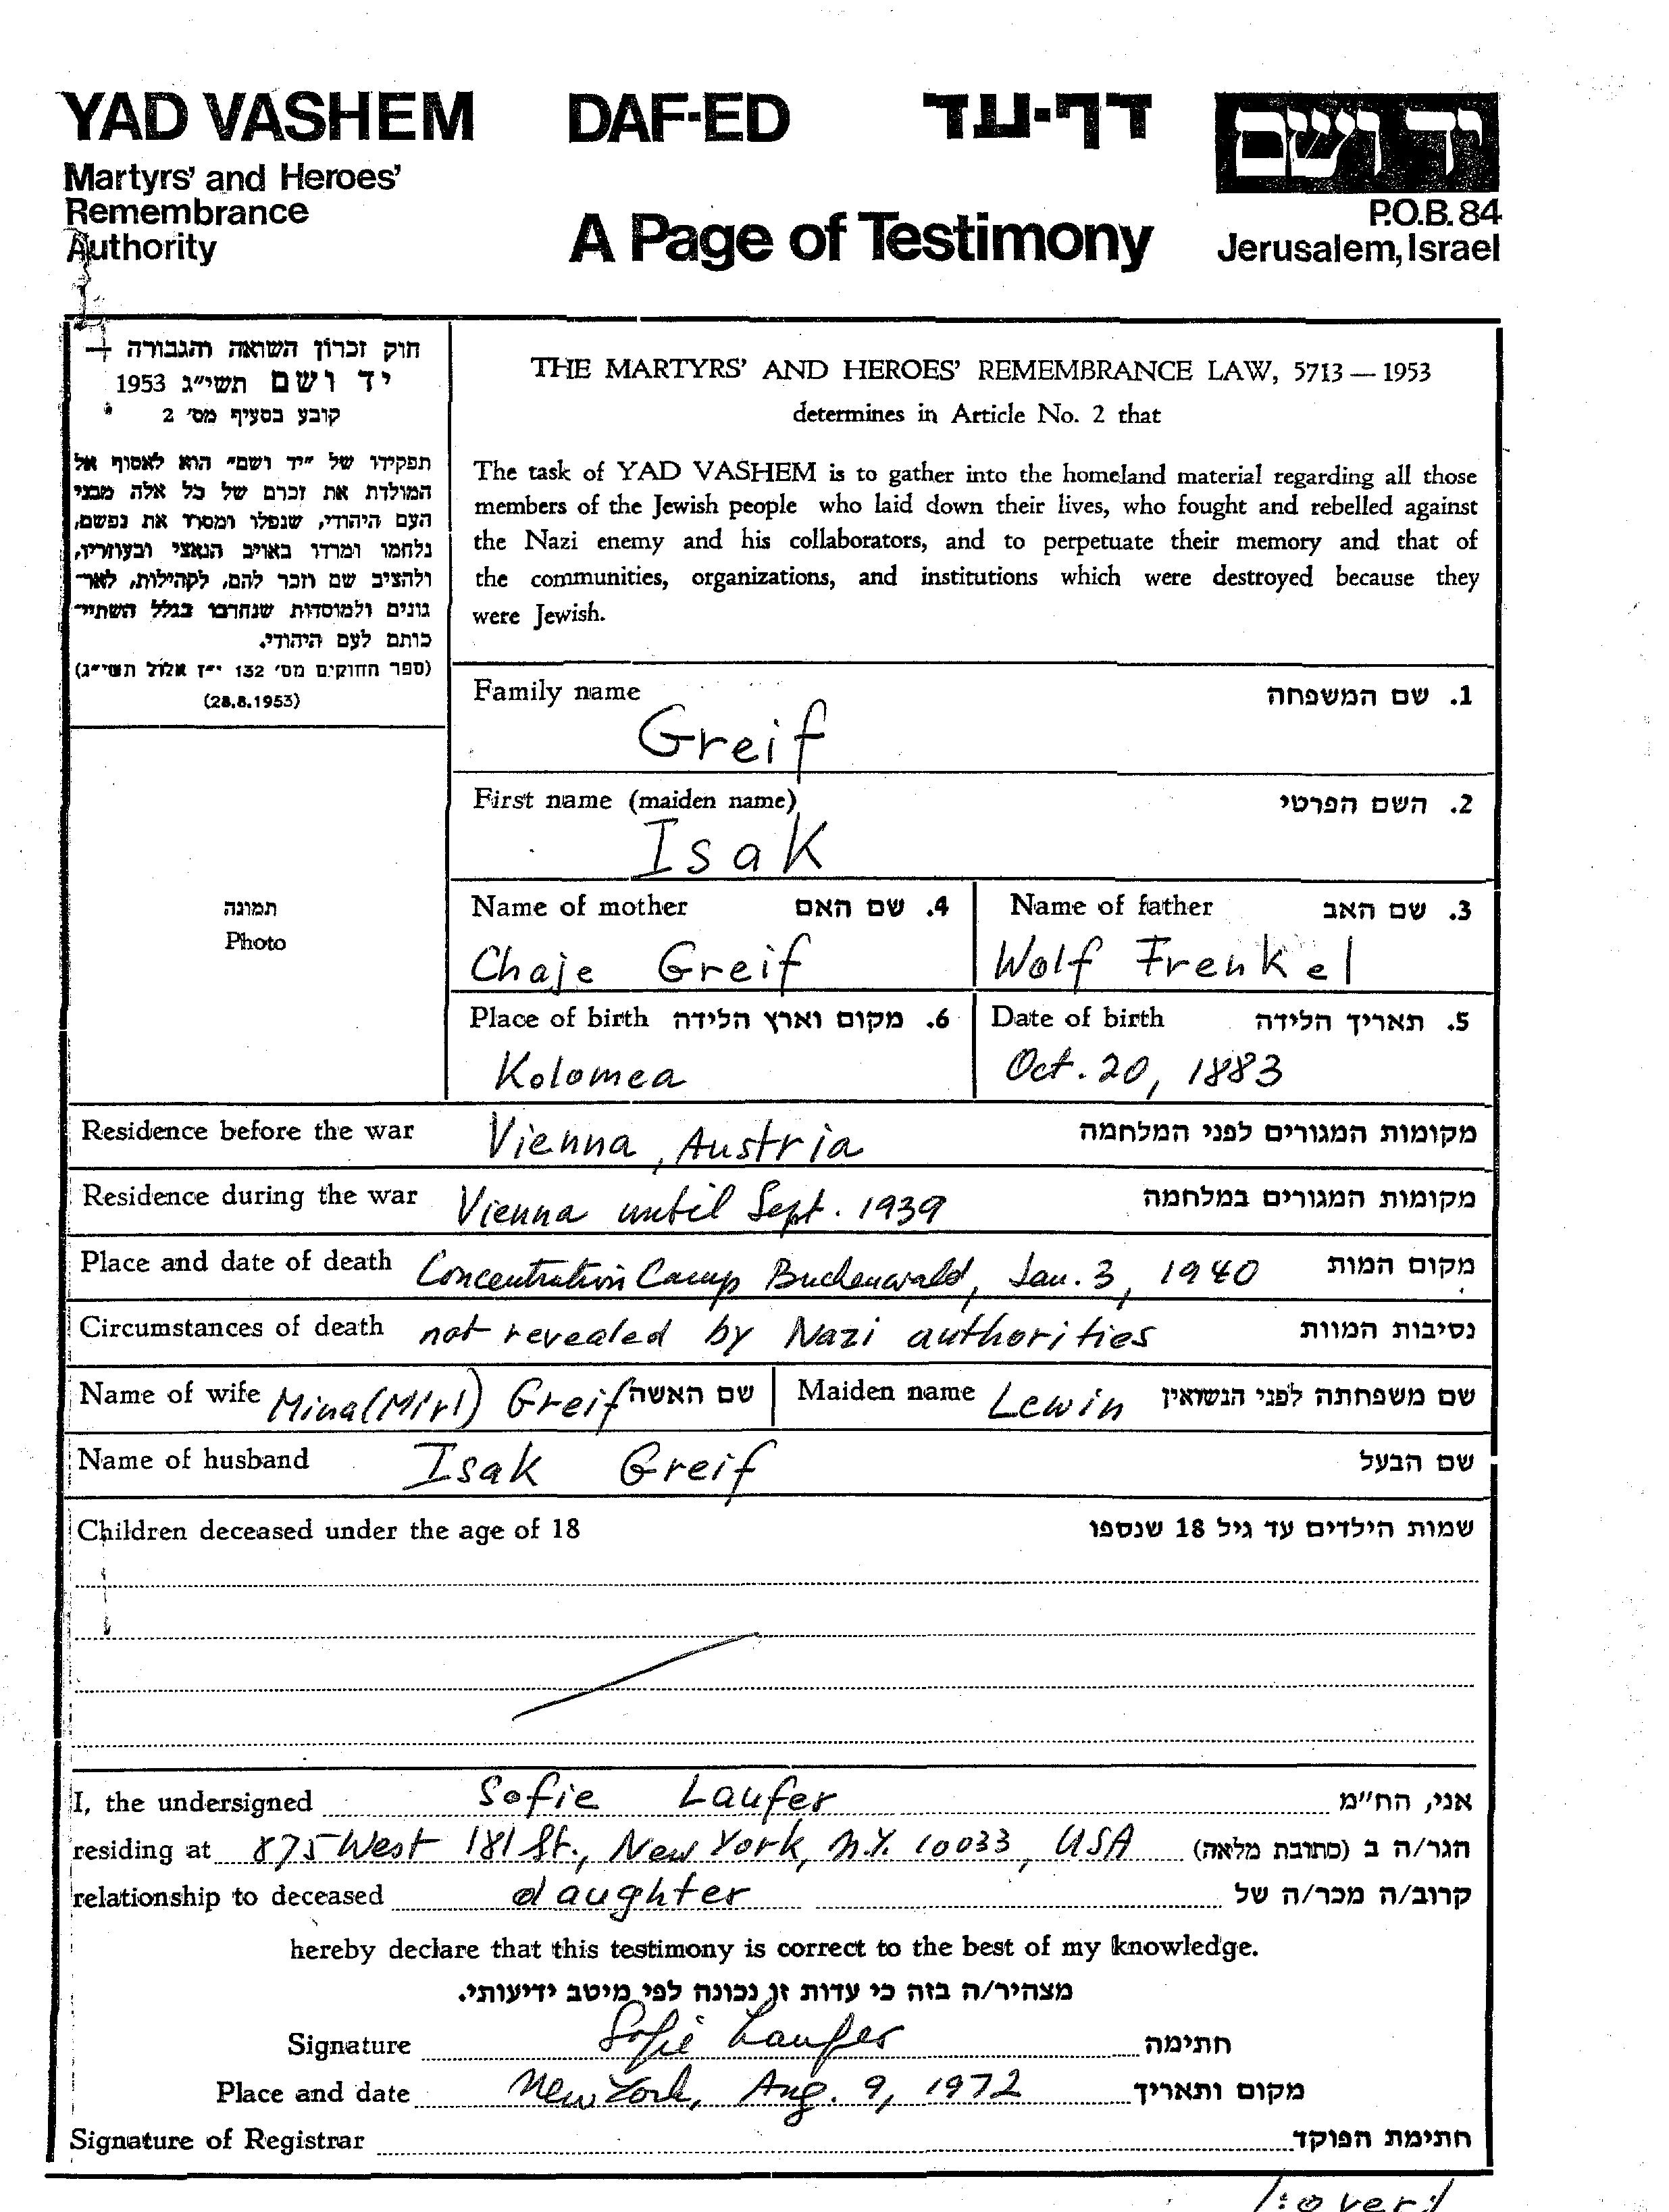 YAD VASHEM DAF-ED דף-עד יד ושם
Martyrs' and Heroes'
Remembrance
Authority
A Page of Testimony
P.O.B. 84
Jerusalem, Israel
חוק זכרון השואה והגבורה
יד ושם תשי״ג 1953
קובע בסעיף מס׳ 2
תפקידו של ״יד ושם״ הוא לאסוף אל
המולדת את זכרם של כל אלה מבני
העם היהודי, שנפלו ומסרו את נפשם,
נלחמו ומרדו באויב הנאצי ובעוזריו,
ולהציב שם וזכר להם, לקהילות, לאר־
גונים ולמוסדות שנחרבו בגלל השתיי־
כותם לעם היהודי.
(ספר החוקים מס׳ 132 י״ז אלול תשי״ג)
(28.8.1953)
תמונה
Photo
THE MARTYRS' AND HEROES' REMEMBRANCE LAW, 5713 — 1953
determines in Article No. 2 that
The task of YAD VASHEM is to gather into the homeland material regarding all those
members of the Jewish people who laid down their lives, who fought and rebelled against
the Nazi enemy and his collaborators, and to perpetuate their memory and that of
the communities, organizations, and institutions which were destroyed because they
were Jewish.
Family name 1. שם המשפחה
Greif
First name (maiden name) 2. השם הפרטי
Isak
Name of mother 4. שם האם Name of father 3. שם האב
Chaje Greif Wolf Frenkel
Place of birth 6. מקום וארץ הלידה Date of birth 5. תאריך הלידה
Kolomea Oct. 20, 1883
Residence before the war Vienna, Austria מקומות המגורים לפני המלחמה
Residence during the war Vienna until Sept. 1939 מקומות המגורים במלחמה
Place and date of death Concentration Camp Buchenwald, Jan. 3, 1940 מקום המות
Circumstances of death not revealed by Nazi authorities נסיבות המוות
Name of wife Mina (Mirl) Greif שם האשה Maiden name Lewin שם משפחתה לפני הנשואין
Name of husband Isak Greif שם הבעל
Children deceased under the age of 18 שמות הילדים עד גיל 18 שנספו
I, the undersigned Sofie Laufer אני, הח״מ
residing at 875 West 181 St., New York, N.Y. 10033, USA הגר/ה ב (כתובת מלאה)
relationship to deceased daughter קרוב/ה מכר/ה של
hereby declare that this testimony is correct to the best of my knowledge.
מצהיר/ה בזה כי עדות זו נכונה לפי מיטב ידיעותי.
Signature Sofie Laufer חתימה
Place and date New York, Aug. 9, 1972 מקום ותאריך
Signature of Registrar חתימת הפוקד
/:over:/